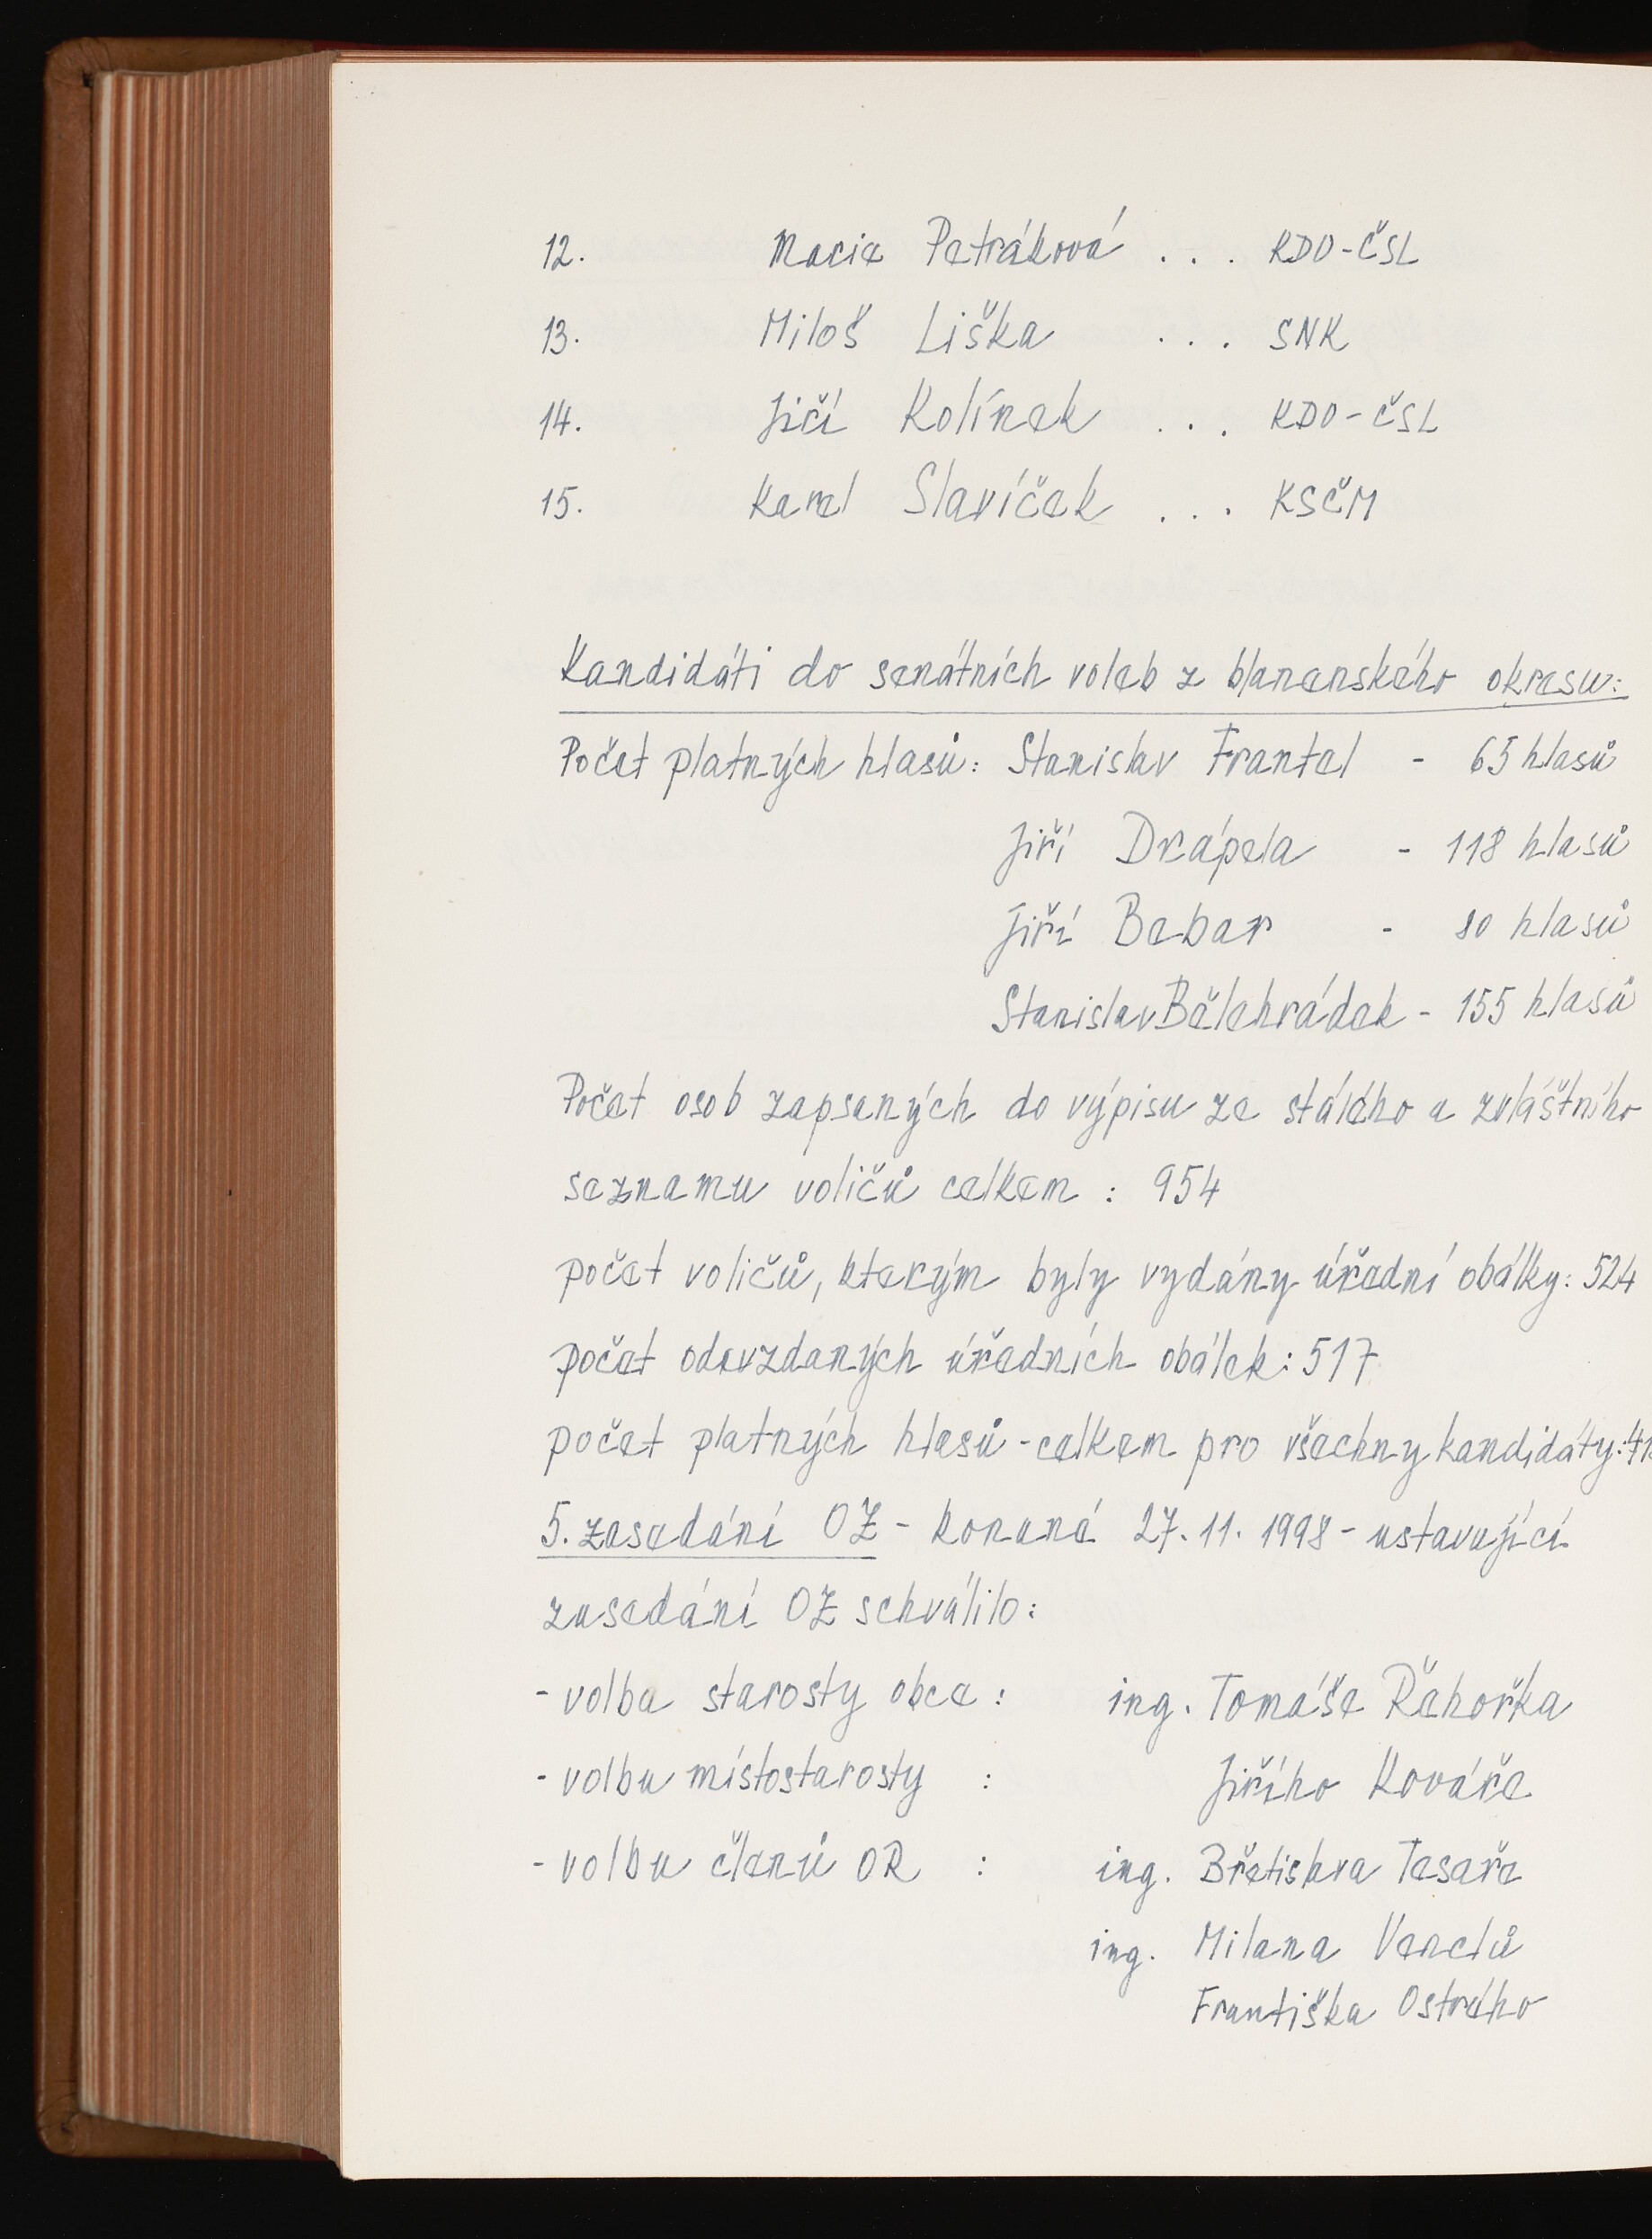 12. Marie Petráková ... KDU-ČSL
13. Miloš Liška ... SNK
14. Jiří Kolínek ... KDU-ČSL
15. Karel Slavíček ... KSČM
Kandidáti do senátních voleb z blanenského okresu:
Počet platných hlasů: Stanislav Frantel - 65 hlasů
Jiří Drápela - 118 hlasů
Jiří Bebar - 80 hlasů
Stanislav Bělehrádek - 155 hlasů
Počet osob zapsaných do výpisu ze stálého a zvláštního
seznamu voličů celkem : 954
počet voličů, kterým byly vydány úřední obálky: 524
počet odevzdaných úředních obálek: 517
počet platných hlasů - celkem pro všechny kandidáty:
5. zasedání OZ - konané 27.11.1998 - ustavující
zasedání OZ schválilo:
- volbu starosty obce : ing. Tomáše Řehořka
- volbu místostarosty : Jiřího Kováře
- volbu členů OR : ing. Břetislava Tesaře
ing. Milana Venclů
Františka Ostrého